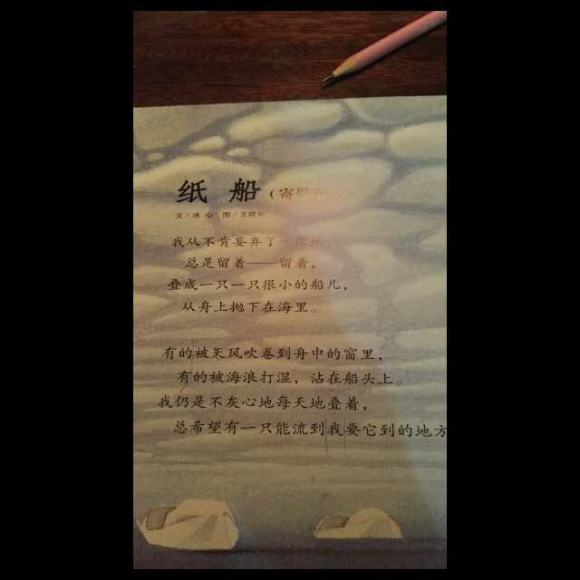 纸船（寄
文/冰心 图/王晓明
我从不肯妄弃了一张纸，
总是留着——留着，
叠成一只一只很小的船儿，
从舟上抛下在海里。
有的被天风吹卷到舟中的窗里，
有的被海浪打湿，沾在船头上。
我仍是不灰心地每天地叠着，
总希望有一只能流到我要它到的地方